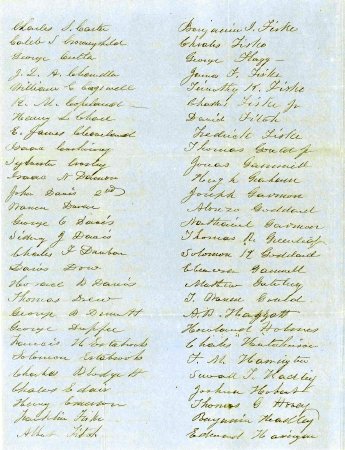 Charles S. Carter
Caleb S.
George Cutler
J. L. A. Chandler
William C.
R. M. Copeland
Henry L. Chase
E. James Cleaveland
Isaac
Sylvester Crosby
Isaac N Damon
John Davis 2nd
Warren
George C Davis
Sidney J Davis
Charles F Dunbar
Davis Dow
D Davis
Thomas Drew
George B
George Dupee
Francis H Estabrook
Solomon Estabrook
Charles
Charles Edair
Henry Emerson
Franklin Fiske
Albert Fitch
Benjamin I. Fiske
Charles Fiske
George Flagg
James F. Fiske
Timothy K. Fiske
Charles Fiske Jr
David Fitch
Frederick Fiske
Thomas Gould Jr
Jonas Gammell
Hugh Graham
Joseph Garmon
Alonzo Goddard
Nathaniel Garmon
Thomas R. Greenleaf
Solomon H Goddard
Gammell
Mathew
T. Warren Gould
A. D. Haggett
Howland Holmes
Charles Hutchinson
F. M. Harrington
Seward T. Hadley
Joshua Hobart
Thomas G Hovey
Benjamin Hadley
Edmund